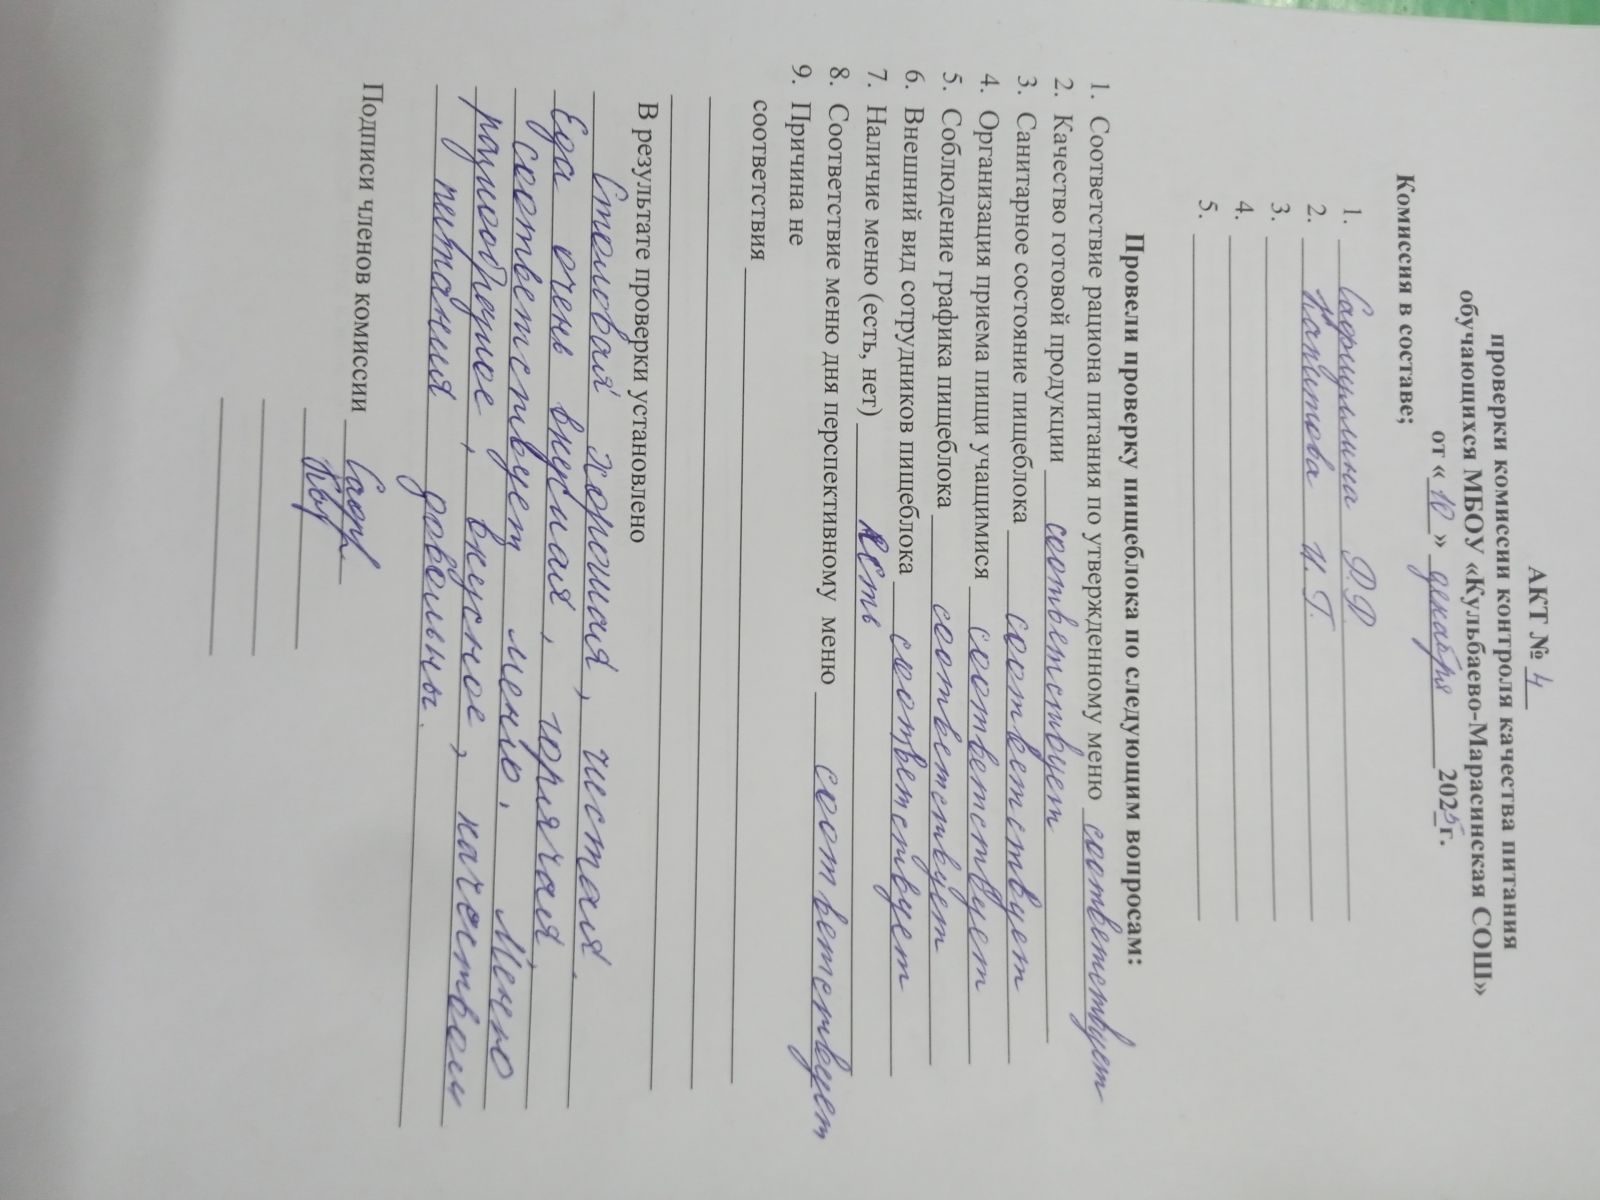 АКТ № 4
проверки комиссии контроля качества питания
обучающихся МБОУ «Кульбаево-Марасинская СОШ»
от «10» декабря 2025 г.
Комиссия в составе;
1. Сафиуллина Ф.Ф
2. И.Г.
3.
4.
5.
Провели проверку пищеблока по следующим вопросам:
1. Соответствие рациона питания по утвержденному меню соответствует
2. Качество готовой продукции соответствует
3. Санитарное состояние пищеблока соответствует
4. Организация приема пищи учащимися соответствует
5. Соблюдение графика пищеблока соответствует
6. Внешний вид сотрудников пищеблока соответствует
7. Наличие меню (есть, нет) есть
8. Соответствие меню дня перспективному меню соответствует
9. Причина не
соответствия
В результате проверки установлено
Столовая хорошая, чистая.
Еда очень вкусная, горячая,
соответствует меню. Меню
разнообразное, вкусное, качеством
питания довольны.
Подписи членов комиссии